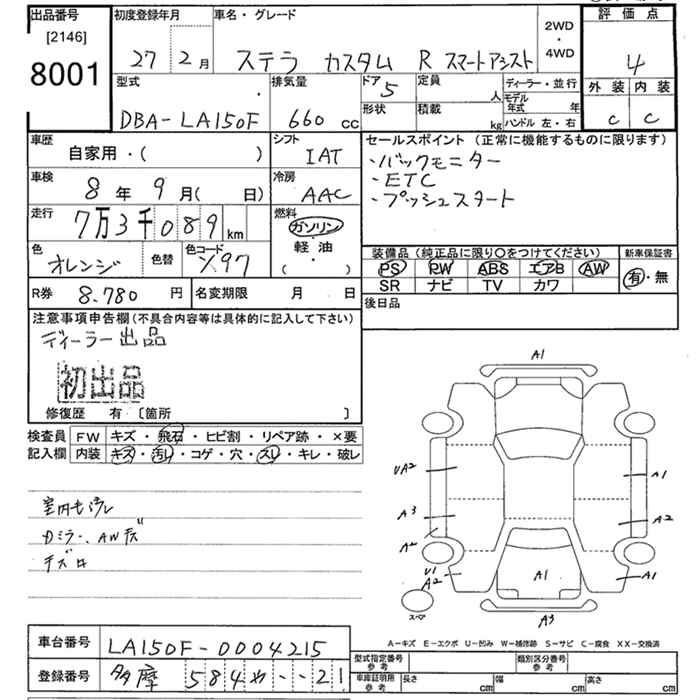 出品番号
[2146]
8001
初度登録年月
27 2月
車名・グレード
ステラ カスタム R スマートアシスト
2WD
・
4WD
評価点
4
外装 内装
C C
型式
DBA-LA150F
排気量
660 cc
ドア 5
形状
定員 人
積載 kg
ディーラー・並行
モデル年式 年
ハンドル 左・右
車歴
自家用・( )
シフト
IAT
車検
8年 9月( 日)
冷房
AAC
走行
7万3千089km
燃料
ガソリン
・
軽油
・
( )
色
オレンジ
色替
色コード
X97
R券 8.780円
名変期限 月 日
セールスポイント (正常に機能するものに限ります)
・バックモニター
・ETC
・プッシュスタート
装備品(純正品に限り○をつけてください)
新車保証書
PS PW ABS エアB AW
SR ナビ TV カワ
有・無
後日品
注意事項申告欄(不具合内容等は具体的に記入して下さい)
ディーラー出品
初出品
修復歴 有 〔箇所 〕
検査員記入欄
FW キズ・飛石・ヒビ割・リペア跡・×要
内装 キズ・汚レ・コゲ・穴・スレ・キレ・破レ
室内モヨレ
カミラー、AWキズ
A1
UA2
A3
A2
U1
A2
A1
A2
A1
A1
A3
スペア
A-キズ E-エクボ U-凹み W-補修跡 S-サビ C-腐食 XX-交換済
車台番号 LA150F-0004215
登録番号 多摩 584 や ・・21
型式指定番号 参考
類別区分番号 参考
車庫証明用 参考
長さ cm
幅 cm
高さ cm